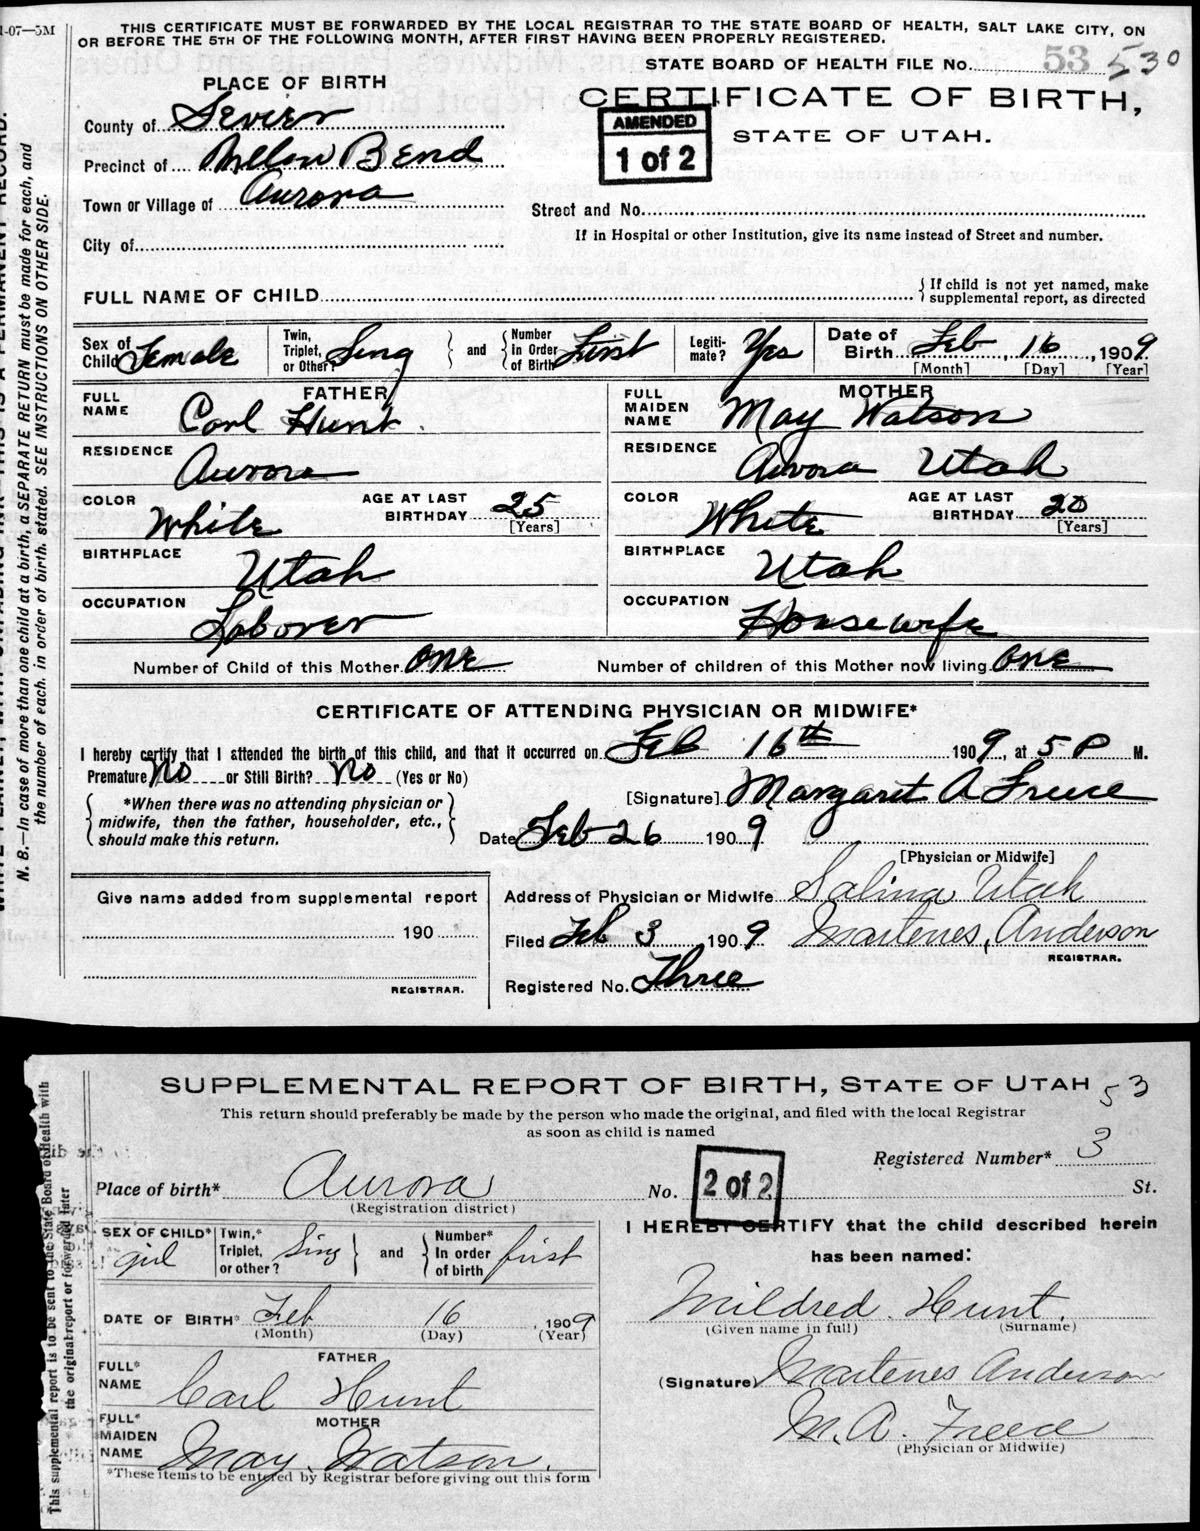 1-07—5M
THIS CERTIFICATE MUST BE FORWARDED BY THE LOCAL REGISTRAR TO THE STATE BOARD OF HEALTH, SALT LAKE CITY, ON
OR BEFORE THE 5TH OF THE FOLLOWING MONTH, AFTER FIRST HAVING BEEN PROPERLY REGISTERED.
STATE BOARD OF HEALTH FILE No. 53 530
PLACE OF BIRTH
CERTIFICATE OF BIRTH,
STATE OF UTAH.
AMENDED
1 of 2
County of Sevier
Precinct of Willow Bend
Town or Village of Aurora
Street and No.
City of
If in Hospital or other Institution, give its name instead of Street and number.
FULL NAME OF CHILD
If child is not yet named, make
supplemental report, as directed
Sex of Child Female
Twin, Triplet, or Other? Sing
and
Number in Order of Birth First
Legiti-mate? Yes
Date of Birth Feb, 16, 1909.
[Month] [Day] [Year]
FATHER
FULL NAME Carl Hunt.
RESIDENCE Aurora
COLOR White
AGE AT LAST BIRTHDAY 25
[Years]
BIRTHPLACE Utah
OCCUPATION Laborer
MOTHER
FULL MAIDEN NAME May Watson
RESIDENCE Aurora Utah
COLOR White
AGE AT LAST BIRTHDAY 20
[Years]
BIRTHPLACE Utah
OCCUPATION Housewife
Number of Child of this Mother one
Number of children of this Mother now living one
CERTIFICATE OF ATTENDING PHYSICIAN OR MIDWIFE*
I hereby certify that I attended the birth of this child, and that it occurred on Feb 16th 1909, at 5 P M.
Premature No or Still Birth? No (Yes or No)
*When there was no attending physician or
midwife, then the father, householder, etc.,
should make this return.
[Signature] Margaret A Freece
Date Feb 26 1909
[Physician or Midwife]
Give name added from supplemental report
190
REGISTRAR.
Address of Physician or Midwife Salina Utah
Filed Feb 3 1909 Martenes, Anderson
REGISTRAR.
Registered No. Three
N. B.—In case of more than one child at a birth, a SEPARATE RETURN must be made for each, and
the number of each, in order of birth, stated. SEE INSTRUCTIONS ON OTHER SIDE.
SUPPLEMENTAL REPORT OF BIRTH, STATE OF UTAH 53
This return should preferably be made by the person who made the original, and filed with the local Registrar
as soon as child is named
Registered Number* 3
2 of 2
Place of birth* Aurora
No. St.
(Registration district)
SEX OF CHILD* girl
Twin,* Triplet, or other? Sing
and
Number* In order of birth first
DATE OF BIRTH* Feb 16, 1909
(Month) (Day) (Year)
FATHER
FULL* NAME Carl Hunt
MOTHER
FULL* MAIDEN NAME May Watson.
*These items to be entered by Registrar before giving out this form
I HEREBY CERTIFY that the child described herein
has been named:
Mildred Hunt.
(Given name in full) (Surname)
(Signature) Martenes Anderson
M. A. Freece
(Physician or Midwife)
This supplemental report is to be sent to the State Board of Health with
the original report or forwarded later